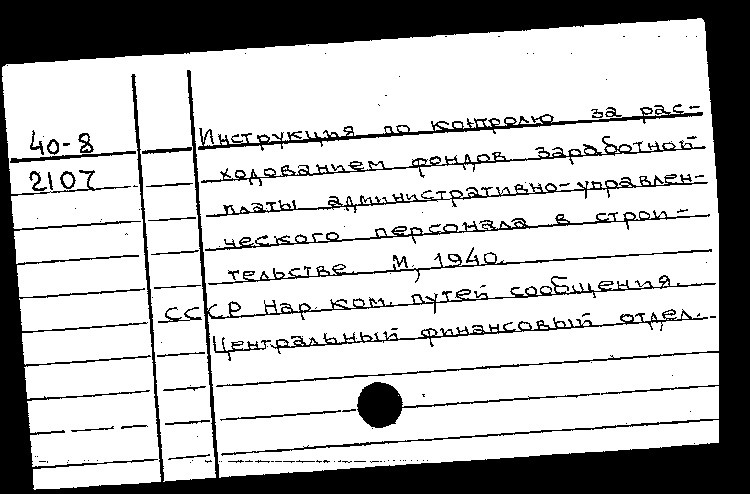 40-8
2107
Инструкция по контролю за рас-
ходованием фондов заработной
платы административно-управлен-
ческого персонала в строи-
тельстве. М, 1940.
СССР Нар. ком. путей сообщения.
Центральный финансовый отдел.